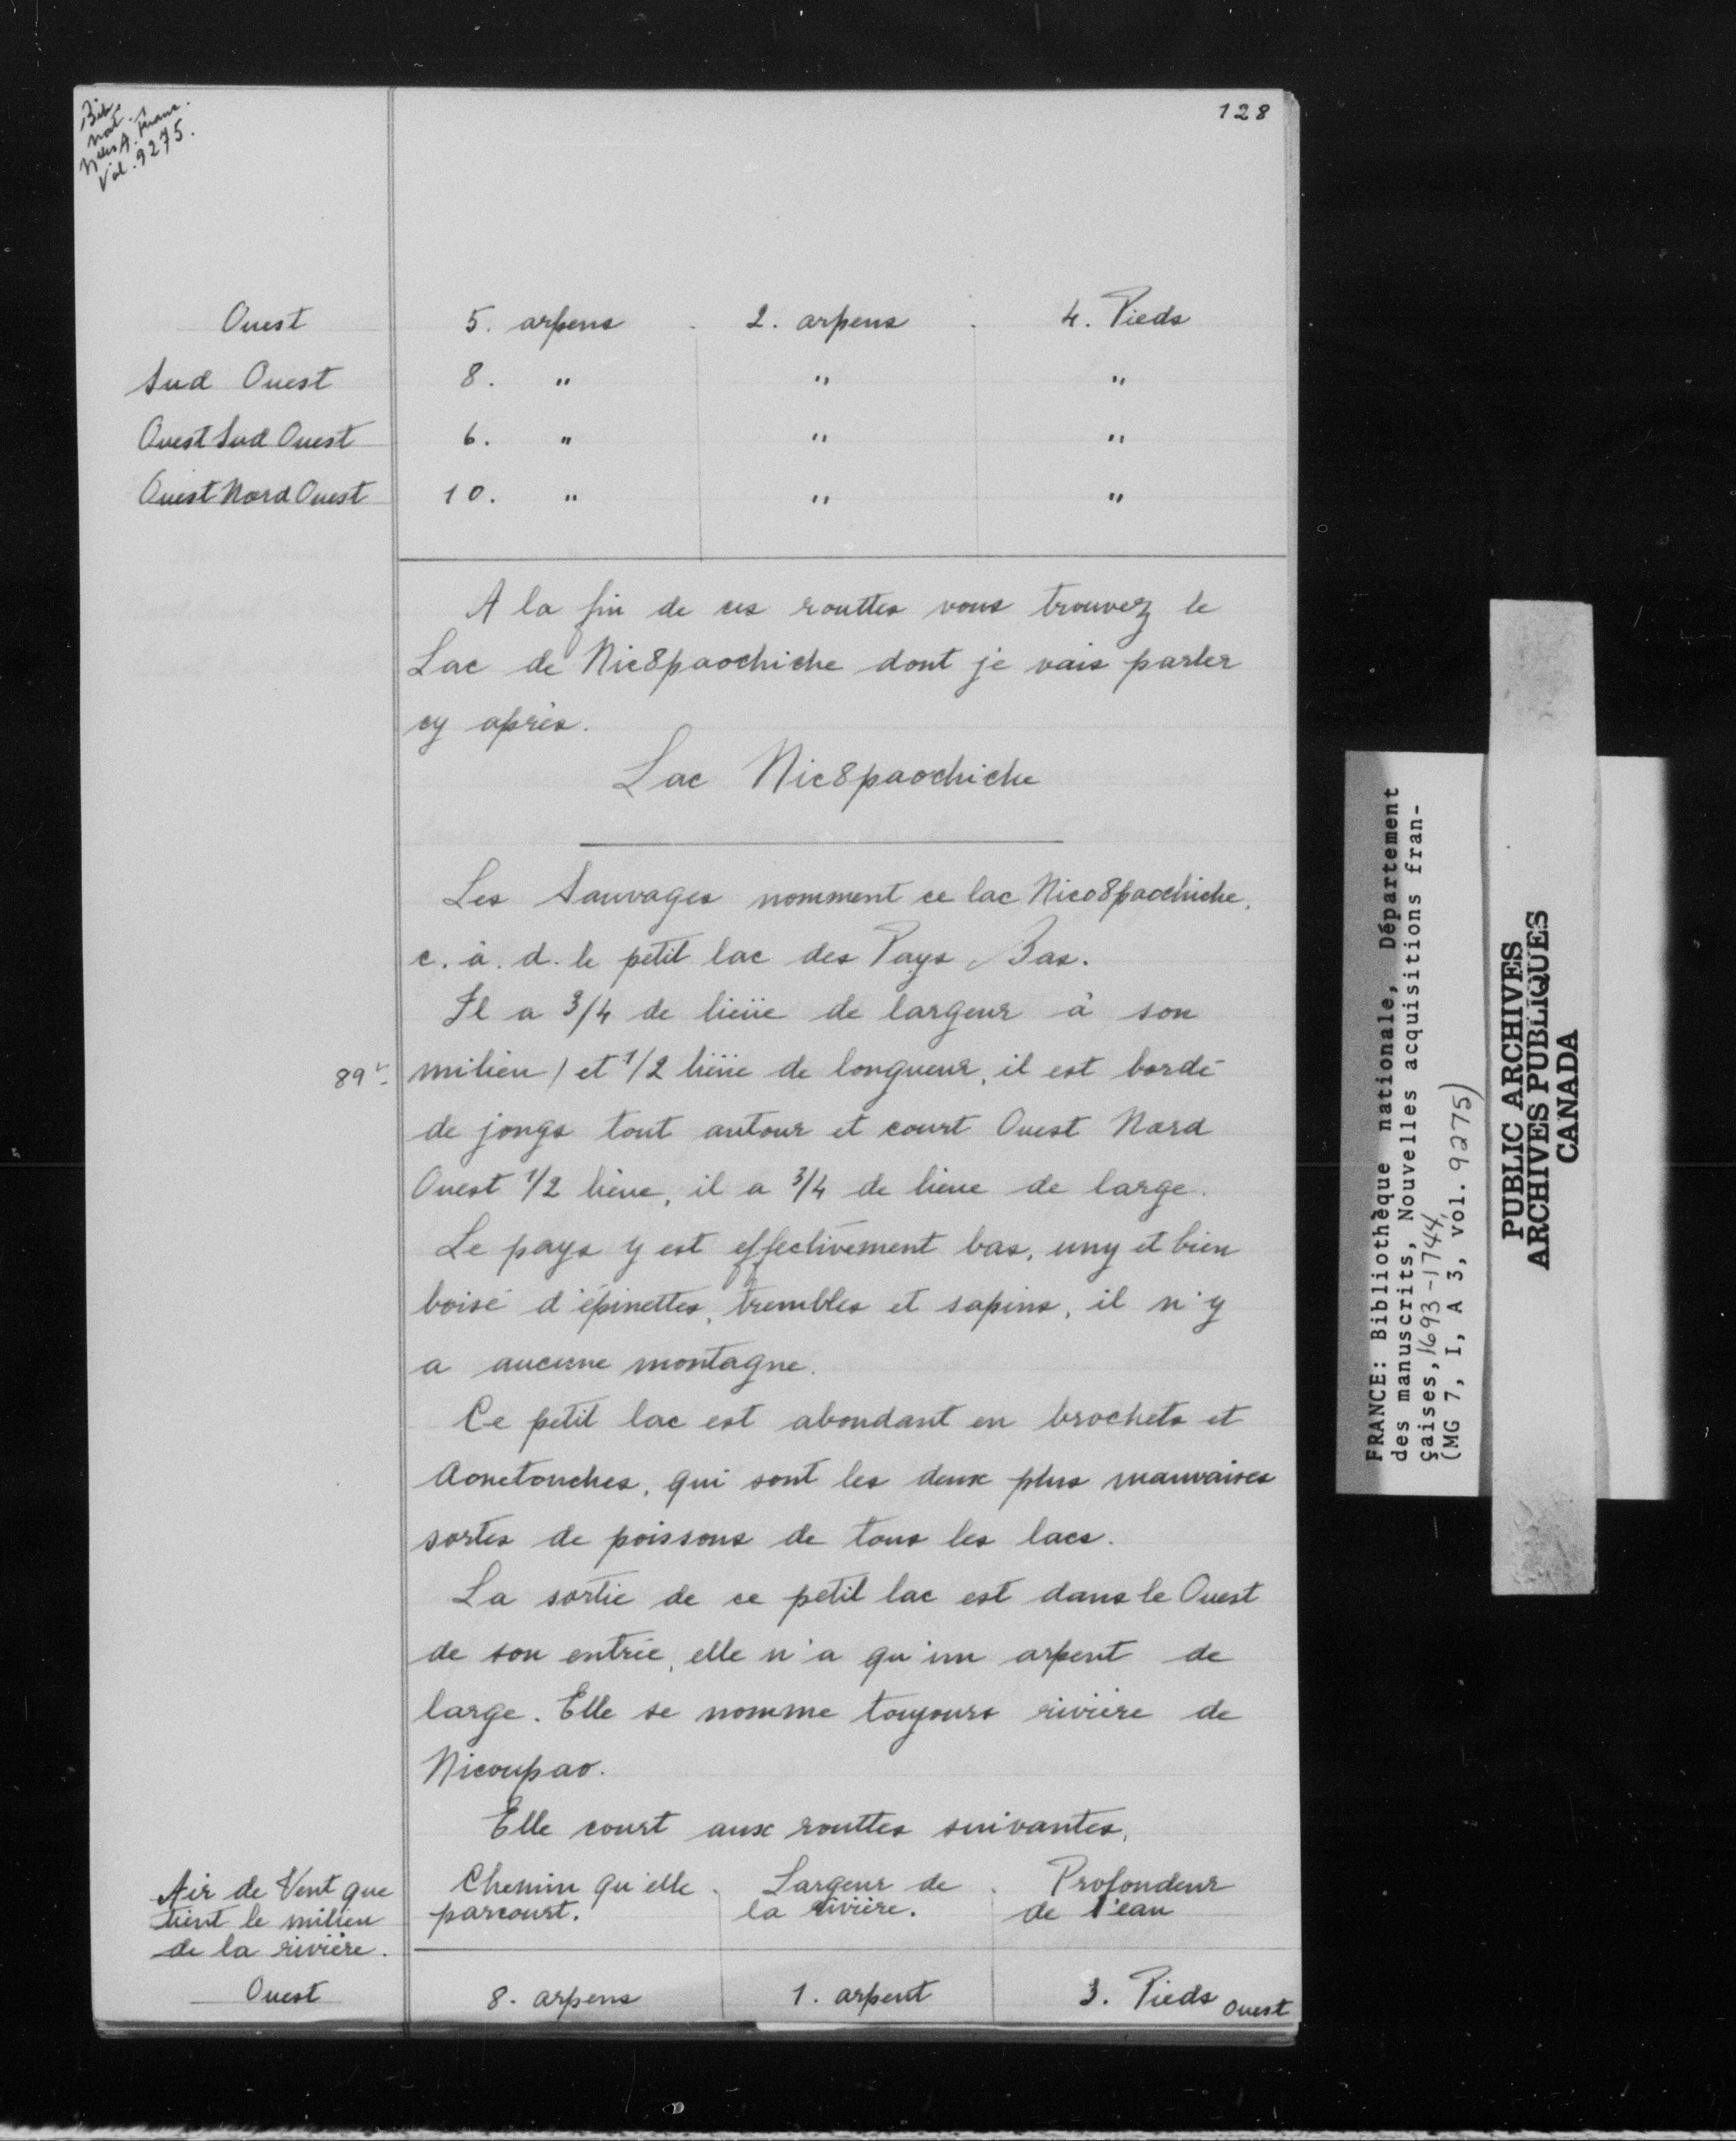 Bib.
nat.
Nlles A. franc.
Vol. 9275.
128
Ouest 5. arpens . 2. arpens . 4. Pieds
Sud Ouest 8. " " "
Ouest Sud Ouest 6. " " "
Ouest Nord Ouest 10. " " "
A la fin de ces routtes vous trouvez le
Lac de Nic8paochiche dont je vais parler
cy après.
Lac Nic8paochiche
Les Sauvages nomment ce lac Nico8paochiche,
c. à. d. le petit lac des Pays Bas.
Il a 3/4 de lieüe de largeur à son
89v. milieu / et 1/2 lieüe de longueur, il est bordé
de jongs tout autour et court Ouest Nord
Ouest 1/2 lieue, il a 3/4 de lieue de large.
Le pays y est effectivement bas, uny et bien
boisé d'épinettes, trembles et sapins, il n'y
a aucune montagne.
Ce petit lac est abondant en brochets et
Aonetouches, qui sont les deux plus mauvaises
sortes de poissons de tous les lacs.
La sortie de ce petit lac est dans le Ouest
de son entrée, elle n'a qu'un arpent de
large. Elle se nomme toujours rivière de
Nicoupao.
Elle court aux routtes suivantes,
Air de Vent que
tient le milieu
de la rivière.
Chemin qu'elle
parcourt.
Largeur de
la rivière.
Profondeur
de l'eau
Ouest 8. arpens 1. arpent 3. Pieds
Ouest
FRANCE: Bibliothèque nationale, Département
des manuscrits, Nouvelles acquisitions fran-
çaises, 1693-1744
(MG 7, I, A 3, vol. 9275)
PUBLIC ARCHIVES
ARCHIVES PUBLIQUES
CANADA